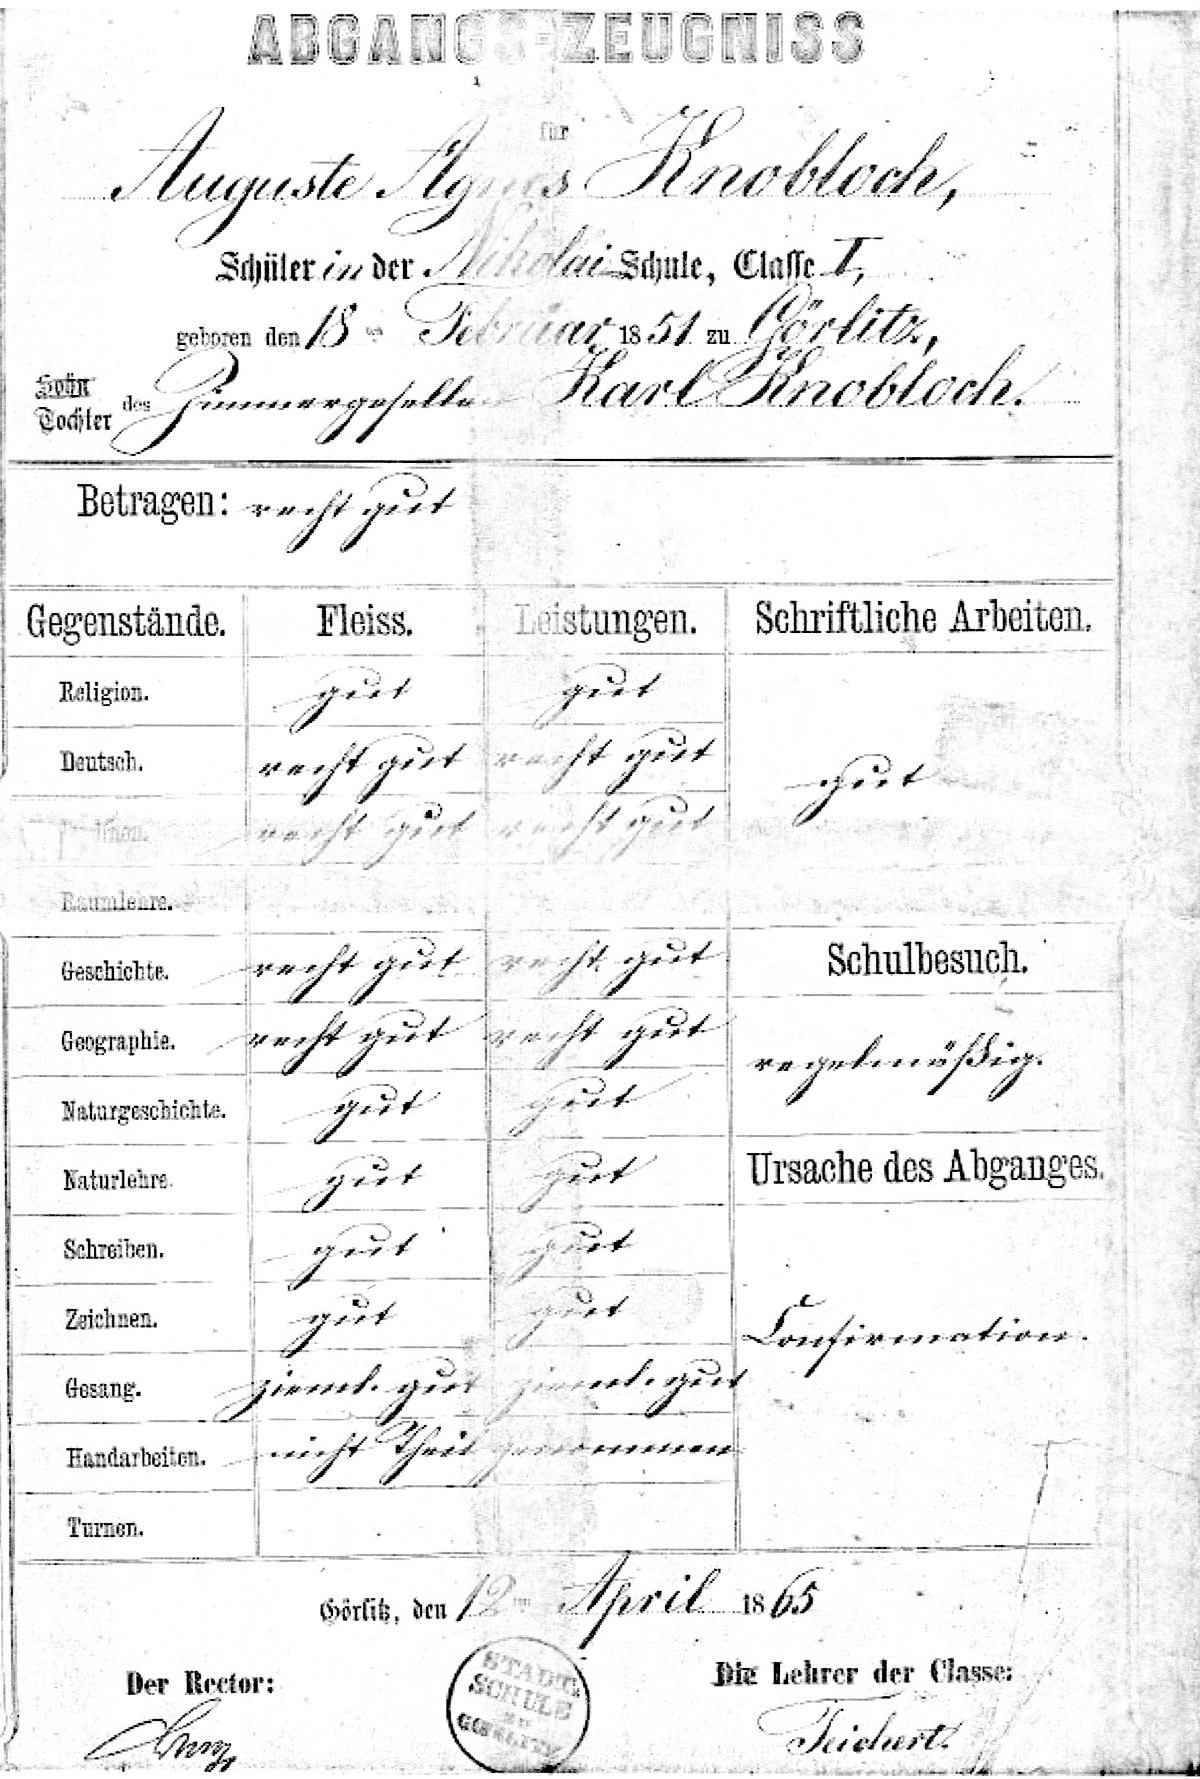 ABGANGS-ZEUGNISS
für
Auguste Agnes Knobloch,
Schüler in der Nikolai Schule, Classe I,
geboren den 18ten Februar 1851 zu Görlitz,
Sohn
Tochter des Zimmergeselle Karl Knobloch.
Betragen: recht gut
Gegenstände. Fleiss. Leistungen. Schriftliche Arbeiten.
Religion. gut gut
Deutsch. recht gut recht gut
gut
recht gut recht gut
Raumlehre.
Geschichte. recht gut recht gut Schulbesuch.
Geographie. recht gut recht gut
regelmäßig.
Naturgeschichte. gut gut
Naturlehre. gut gut Ursache des Abganges.
Schreiben. gut gut
Zeichnen. gut gut
Confirmation.
Gesang. zieml. gut zieml. gut
Handarbeiten. nicht Theil genommen
Turnen.
Görlitz, den 12ten April 1865
Der Rector: Die Lehrer der Classe:
STADT.
SCHULE
ZU
GOERLITZ
Teichert.